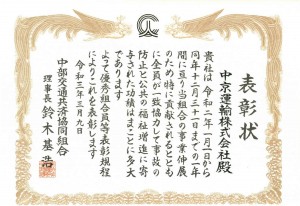 表彰状
中京運輸株式会社殿
貴社は令和二年一月一日から
同年十二月三十一日までの一年
間に亘り当組合の事業伸展
のため特に貢献されるとと
もに全員が一致協力して事故の
防止と公共の福祉増進に寄
与された功績はまことに多大
であります
よって優秀組合員等表彰規程
によりこれを表彰します
令和三年三月九日
中部交通共済協同組合
理事長 鈴木基浩